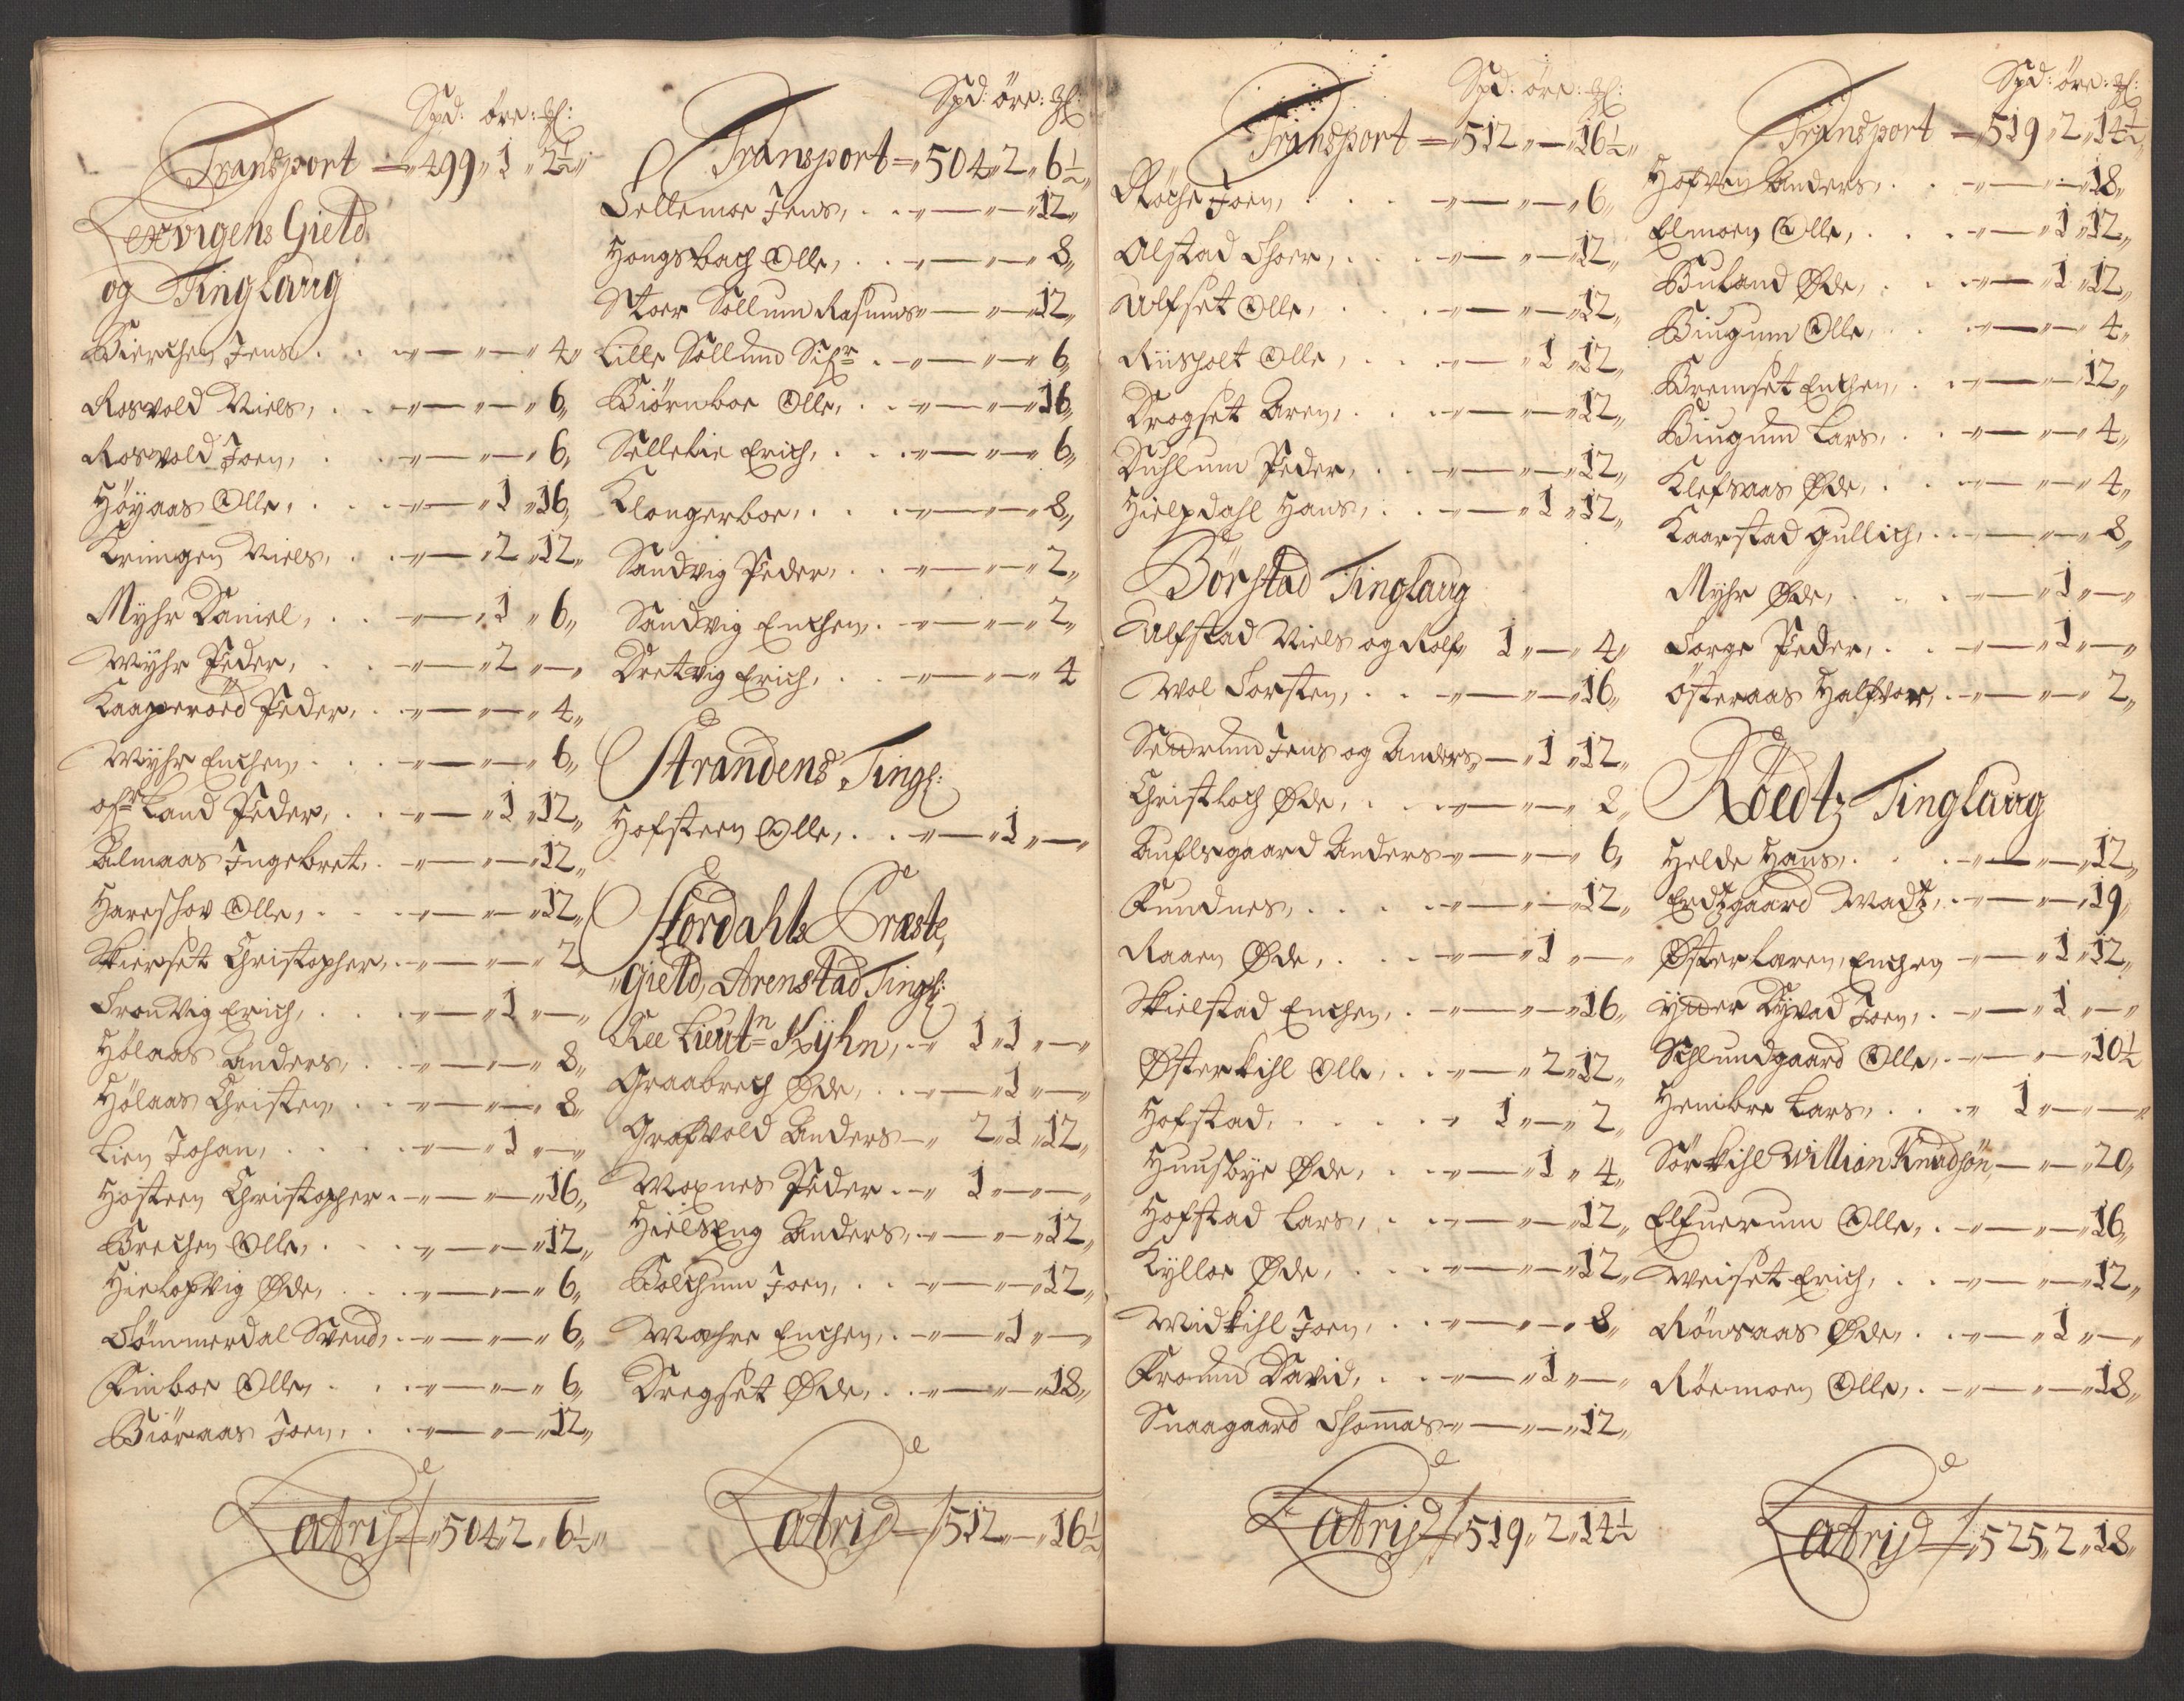 Spd: öre: gl:
Transport = 499 „ 1 „ 2½ „
Lexvigens Gield
og Tinglaug
Bierchen Jens . . . „ — „ — „ 4 „
Rosvold Niels, . . „ — „ — „ 6 „
Rosvold Joen, . . „ — „ — „ 6 „
Höyaas Olle, . . „ — „ 1 „ 16 „
Kringen Niels, . . „ — „ 2 „ 12 „
Myhr Daniel, . . „ — „ 1 „ 6 „
Myhr Peder, . . „ — „ 2 „ — „
Kaaperöed Peder, . „ — „ — „ 4 „
Myhr Enchen, . . „ — „ — „ 6 „
Land Peder, . . „ — „ 1 „ 12 „
Almaas Ingebret, . „ — „ — „ 12 „
Hareshov Olle, . . „ — „ — „ 12 „
Skierset Christopher, . „ — „ — „ 2 „
Tronvig Erich, . . „ — „ 1 „ — „
Hölaas Anders, . „ — „ — „ 8 „
Hölaas Christen, . . „ — „ — „ 8 „
Lien Johan, . . . „ — „ 1 „ — „
Hösteen Christopher . „ — „ — „ 16 „
Brechen Olle, . . . „ — „ — „ 12 „
Öde, . . „ — „ — „ 6 „
Sömmerdal Svend, . „ — „ — „ 6 „
Finboe Olle, . . „ — „ — „ 6 „
Biöraas Joen, . . „ — „ — „ 12 „
Latris „ 504 „ 2 „ 6½ „
Spd: öre: gl:
Transport = „ 504 „ 2 „ 6½ „
Sellemoe Jens, . . „ — „ — „ 12 „
Hongsbach Olle, . . „ — „ — „ 8 „
Stoer Sollum Rasmus „ — „ — „ 12 „
Lille Sollum . „ — „ — „ 6 „
Biörnboe Olle, . . „ — „ — „ 16 „
Sellelie Erich, . . „ — „ — „ 6 „
Klongerboe, . . . „ — „ — „ 8 „
Sandvig Peder, . . „ — „ — „ 2 „
Sandvig Enchen, . „ — „ — „ 2 „
Dretvig Erich, . . „ — „ — „ 4
Strandens Tingl:
Hofsteen Olle, . . „ — „ 1 „ — „
Stördahls Præste,
Gield, Arenstad Tingl:
Lieutn Kyhn, . „ 1 „ 1 „ — „
Graabrech Öde, . . „ — „ 1 „ — „
Grafvold Anders — „ 2 „ 1 „ 12 „
Moxnes Peder . . „ 1 „ — „ — „
Hielseng Anders, . „ — „ — „ 12 „
Bolchum Joen, . . „ — „ — „ 12 „
Mæhre Enchen, . „ — „ 1 „ — „
Dregset Öde, . . „ — „ — „ 18 „
Latris „ 512 „ — „ 16½
Spd: öre: gl:
Transport = „ 512 „ — „ 16½ „
Röche Joen, . . . „ — „ — „ 6 „
Alstad Thoer, . . . „ — „ — „ 12 „
Ulfset Olle, . . . „ — „ — „ 12 „
Riisholt Olle, . . „ — „ 1 „ 12 „
Drogset Aren, . . „ — „ — „ 12 „
Duhlum Peder, . . „ — „ — „ 12 „
Hielpdahl Hans, . . „ — „ 1 „ 12 „
Börstad Tinglaug
Ulfstad Niels og Rolf „ 1 „ — „ 4 „
Wol Torsten, . . „ — „ — „ 16 „
Jens og Anders „ — „ 1 „ 12 „
Christloch Öde, . . „ — „ — „ 2 „
Auflsgaard Anders „ — „ — „ 6 „
Fundnes, . . . „ — „ — „ 12 „
Raaen Öde, . . . „ — „ 1 „ — „
Skielstad Enchen, . „ — „ — „ 16 „
Österkihl Olle, . . „ — „ 2 „ 12 „
Hofstad, . . . . „ 1 „ — „ 2 „
Huusbye Öde, . . „ — „ 1 „ 4 „
Hofstad Lars, . . „ — „ — „ 12 „
Kylloe Öde, . . . „ — „ — „ 12 „
Midkihl Joen, . . „ — „ — „ 8 „
Fronum David, . . „ — „ 1 „ — „
Snaagaard Thomas „ — „ — „ 12 „
Latris „ 519 „ 2 „ 14½
Spd: öre: gl:
Transport = „ 519 „ 2 „ 14½ „
Hofven Anders, . . „ — „ — „ 18 „
Elmoen Olle, . . . „ — „ 1 „ 12 „
Buland Öde, . . „ — „ 1 „ 12 „
Biugum Olle, . . „ — „ — „ 4 „
Bremset Enchen, . . „ — „ — „ 12 „
Biugum Lars, . . „ — „ — „ 4 „
Klefsaas Öde, . . „ — „ — „ 4 „
Kaarstad Gullich, . . „ — „ — „ 8 „
Myhr Öde, . . . „ — „ 1 „ — „
Torge Peder, . . „ — „ 1 „ — „
Österaas Halfvor, . „ — „ — „ 2 „
Röedtz Tinglaug
Helde Hans, . . „ — „ — „ 12 „
Erdtzgaard Madtz, . „ — „ — „ 19 „
Österlaren, Enchen „ — „ 1 „ 12 „
Ytter Dyvad Joen, . „ — „ 1 „ — „
Schlundgaard Olle, . „ — „ — „ 10½
Hembre Lars, . . . „ 1 „ — „ — „
Sörkihl Willian Knudsön, — „ — „ 20 „
Elfuerum Olle, . „ — „ — „ 16 „
Weiset Erich, . . „ — „ — „ 12 „
Rönsaas Öde, . . „ — „ 1 „ — „
Röemoen Olle, . „ — „ — „ 18 „
Latris „ 525 „ 2 „ 18 „